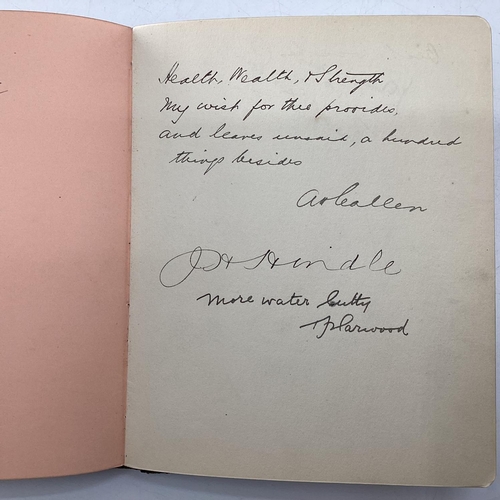 Health, Wealth, & Strength
My wish for thee provides,
and leaves unsaid, a hundred
things besides
Callen
J H Hindle
more water Cutty
Larwood